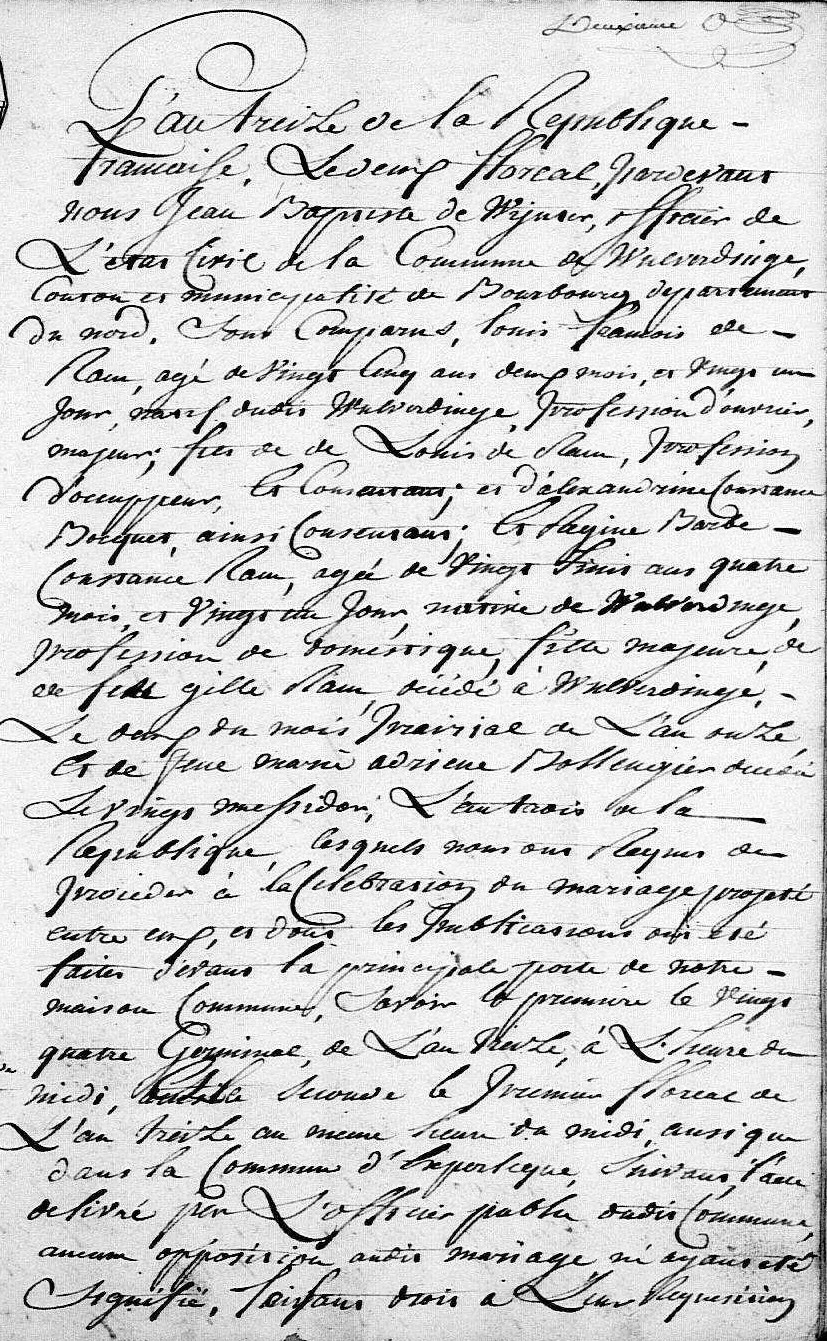 Deuxieme
L'an treize de la Republique
francaise, Le deux floreal, pardevant
nous Jean Baptiste de Wynter, officier de
L'etat Civil de la Commune de Wulverdinge,
Canton et municipalité de Bourbourg, departement
du nord. Sont Comparus, louis francois de
Ram, agé de Vingt Cinq ans deux mois, et Vingt un
Jour, natif dudit Wulverdinge, profession d'ouvrier,
majeur; fils de de Louis de Ram, profession
d'occuppeur, Et Consentant; et d'alexandrine Constance
Bocquet, ainsi Consentant; Et Regine Barbe
Constance Ram, agée de Vingt ans quatre
mois, et Vingt un Jour, native de Wulverdinge,
profession de domestique, fille majeure, de
de feu gille Ram, décédé à Wulverdinge,
Le deux du mois prairial de L'an onze,
Et de feue marie adriene Bollengier décédée
Le vingt messidor, L'an trois de la
Republique, lesquels nous ont Requis de
proceder à la Celebration du mariage projeté
entre eux, et dont les publications ont été
faites devant la principale porte de notre
maison Commune, Savoir la premiere le Vingt
quatre Germinal, de L'an treize, à L'heure du
midi, la seconde le premier floreal de
L'an treize au meme heure du midi, ausi que
dans la Commune d'Eperlecque, Suivant l'acte
delivré par L'officier public dudit Commune,
aucune opposition audit mariage, ni ayant été
Signifié, faisant droit à Leur Requisition